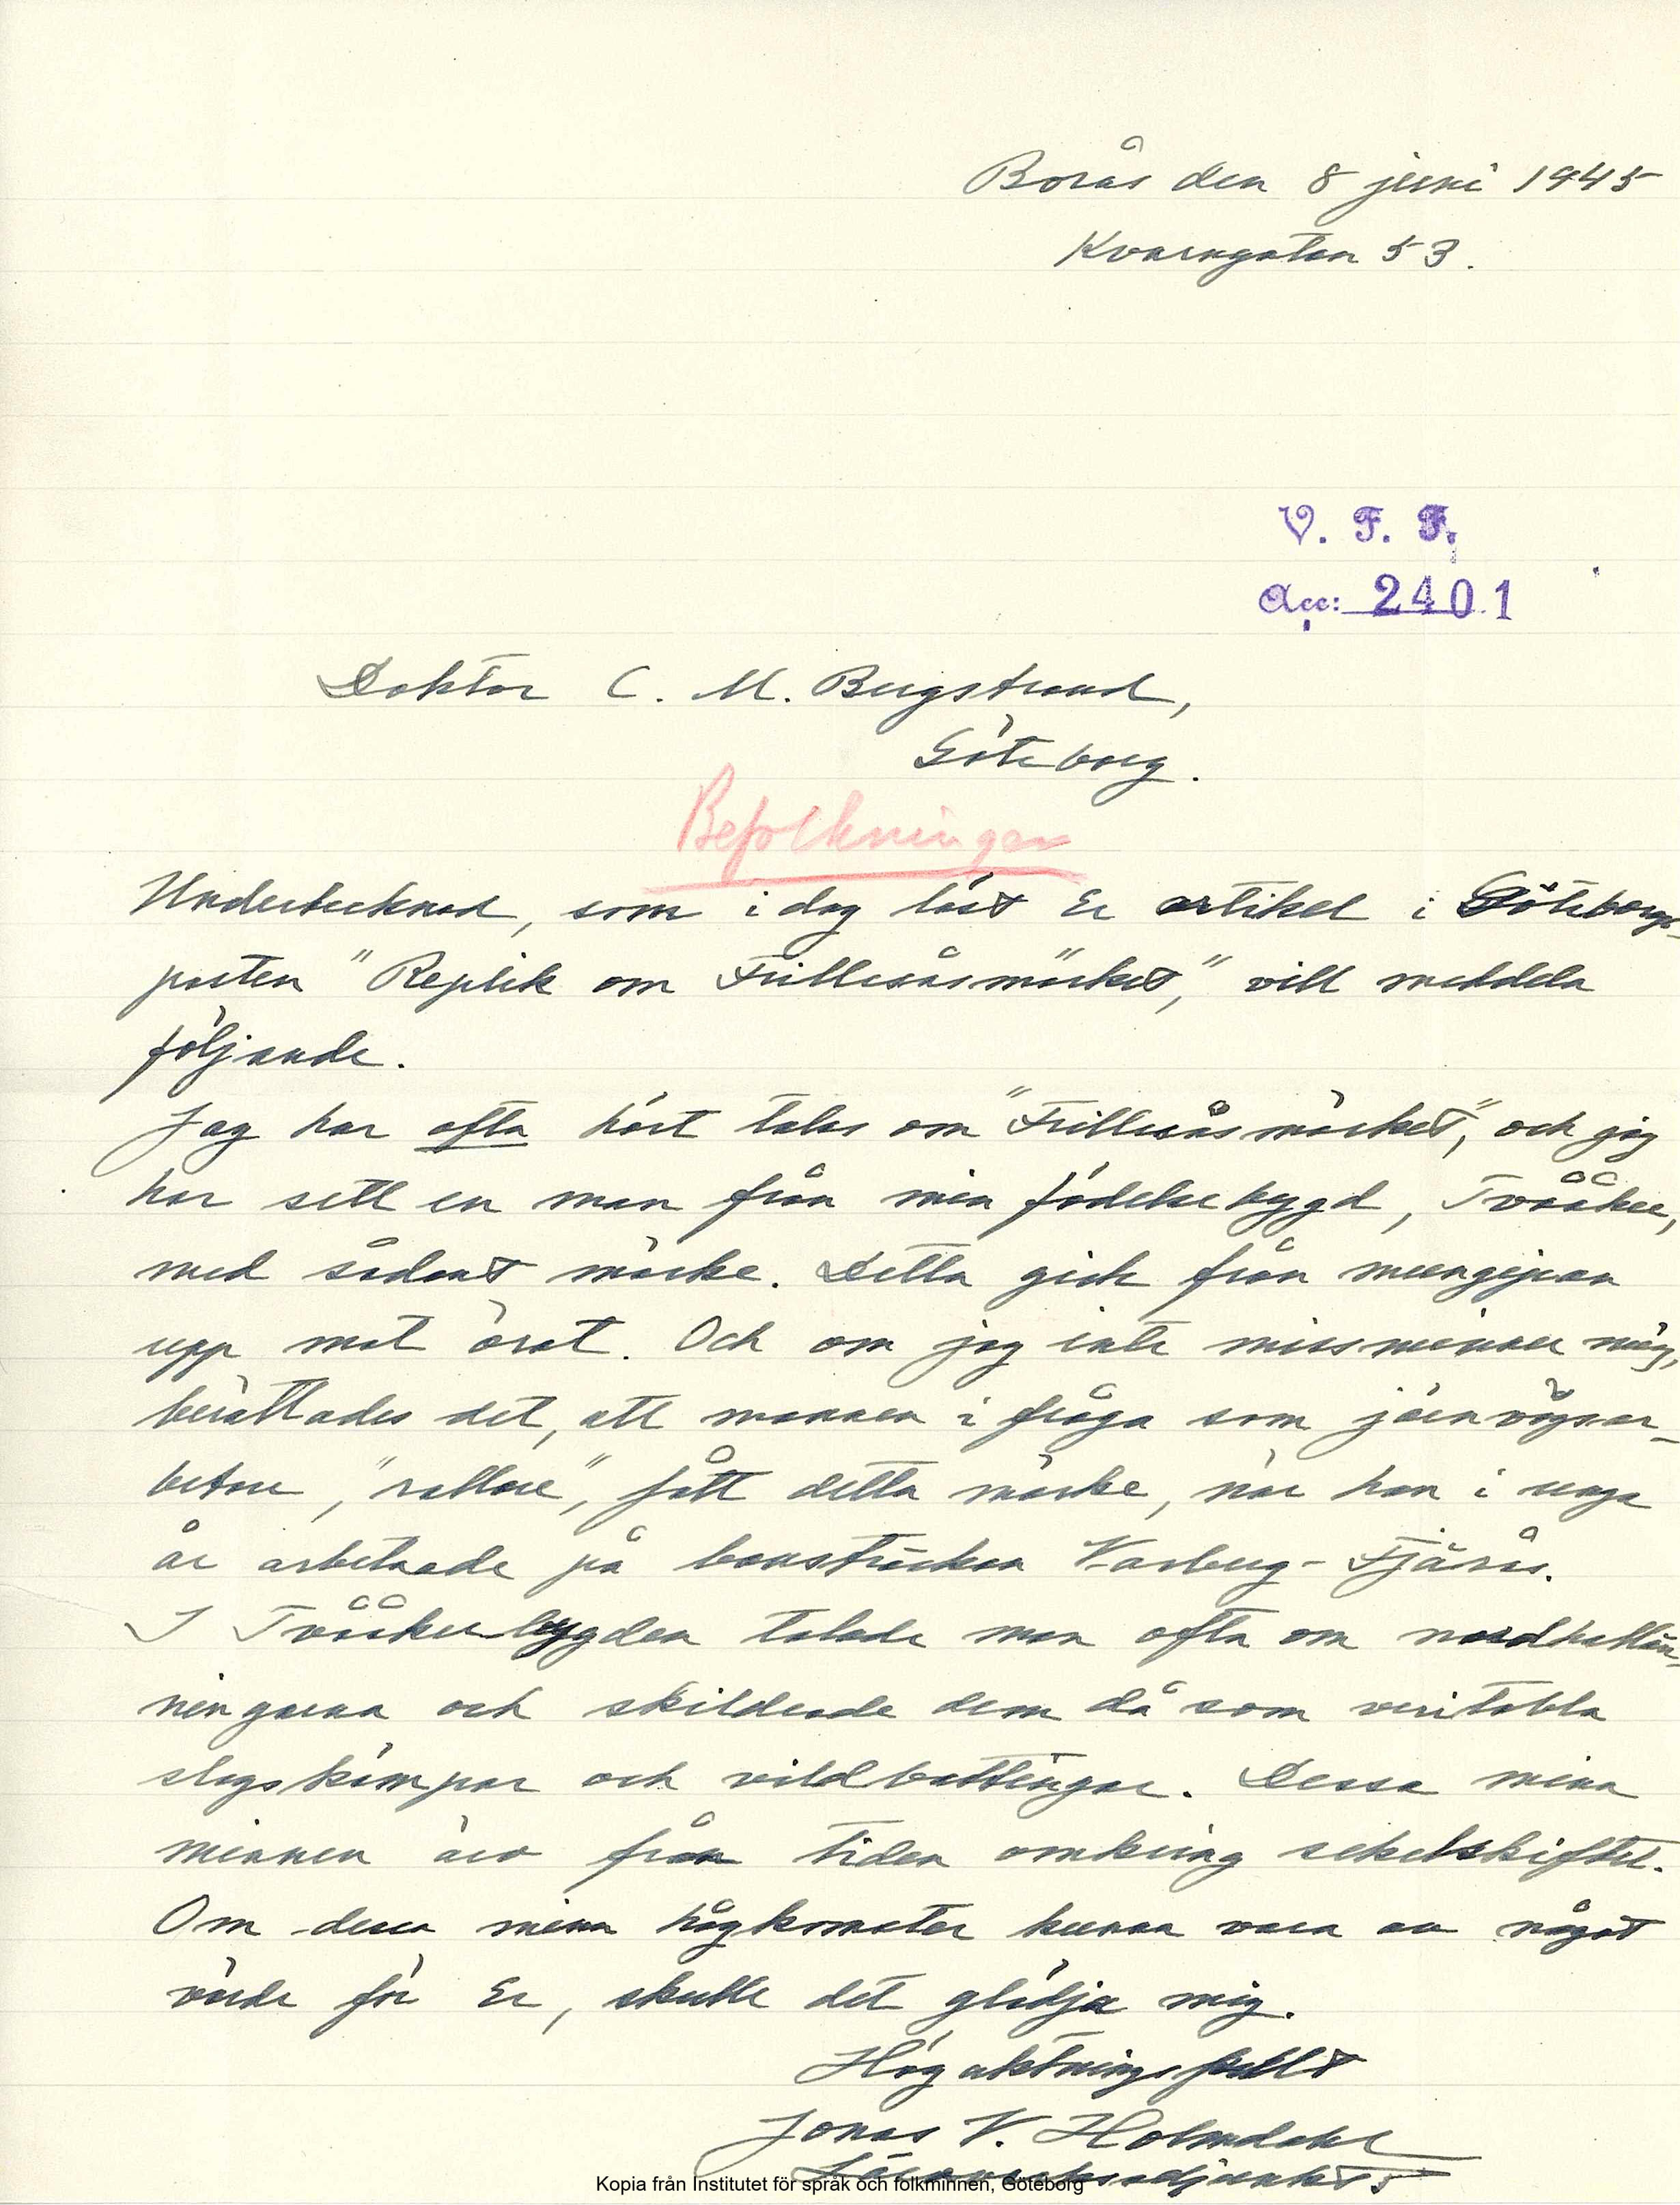 Borås den 8 juni 1945
Kvarngatan 53.
V. F. F.
Acc: 2401
Doktor C. M. Bergstrand,
Göteborg.
Befolkningen
Undertecknad, som i dag läst Er artikel i Göteborgs-
posten "Replik om Frillesåsmärket," vill meddela
följande.
Jag har ofta hört talas om "Frillesåsmärket", och jag
har sett en man från min födelsebygd, Tvååker,
med sådant märke. Detta gick från mungipan
upp mot örat. Och om jag inte missminner mig,
berättades det, att mannen i fråga som järnvägsar-
betare, "rallare", fått detta märke, när han i unga
år arbetade på bansträckan Varberg-Fjärås.
I Tvååkersbygden talade man ofta om nordhallän-
ningarna och skildrade dem då som veritabla
slagskämpar och vildbattingar. Dessa mina
minnen äro från tiden omkring sekelskiftet.
Om dessa mina hågkomster kunna vara av något
värde för Er, skulle det glädja mig.
Högaktningsfullt
Jonas V. Holmdahl
Läroverksadjunkt
Kopia från Institutet för språk och folkminnen, Göteborg